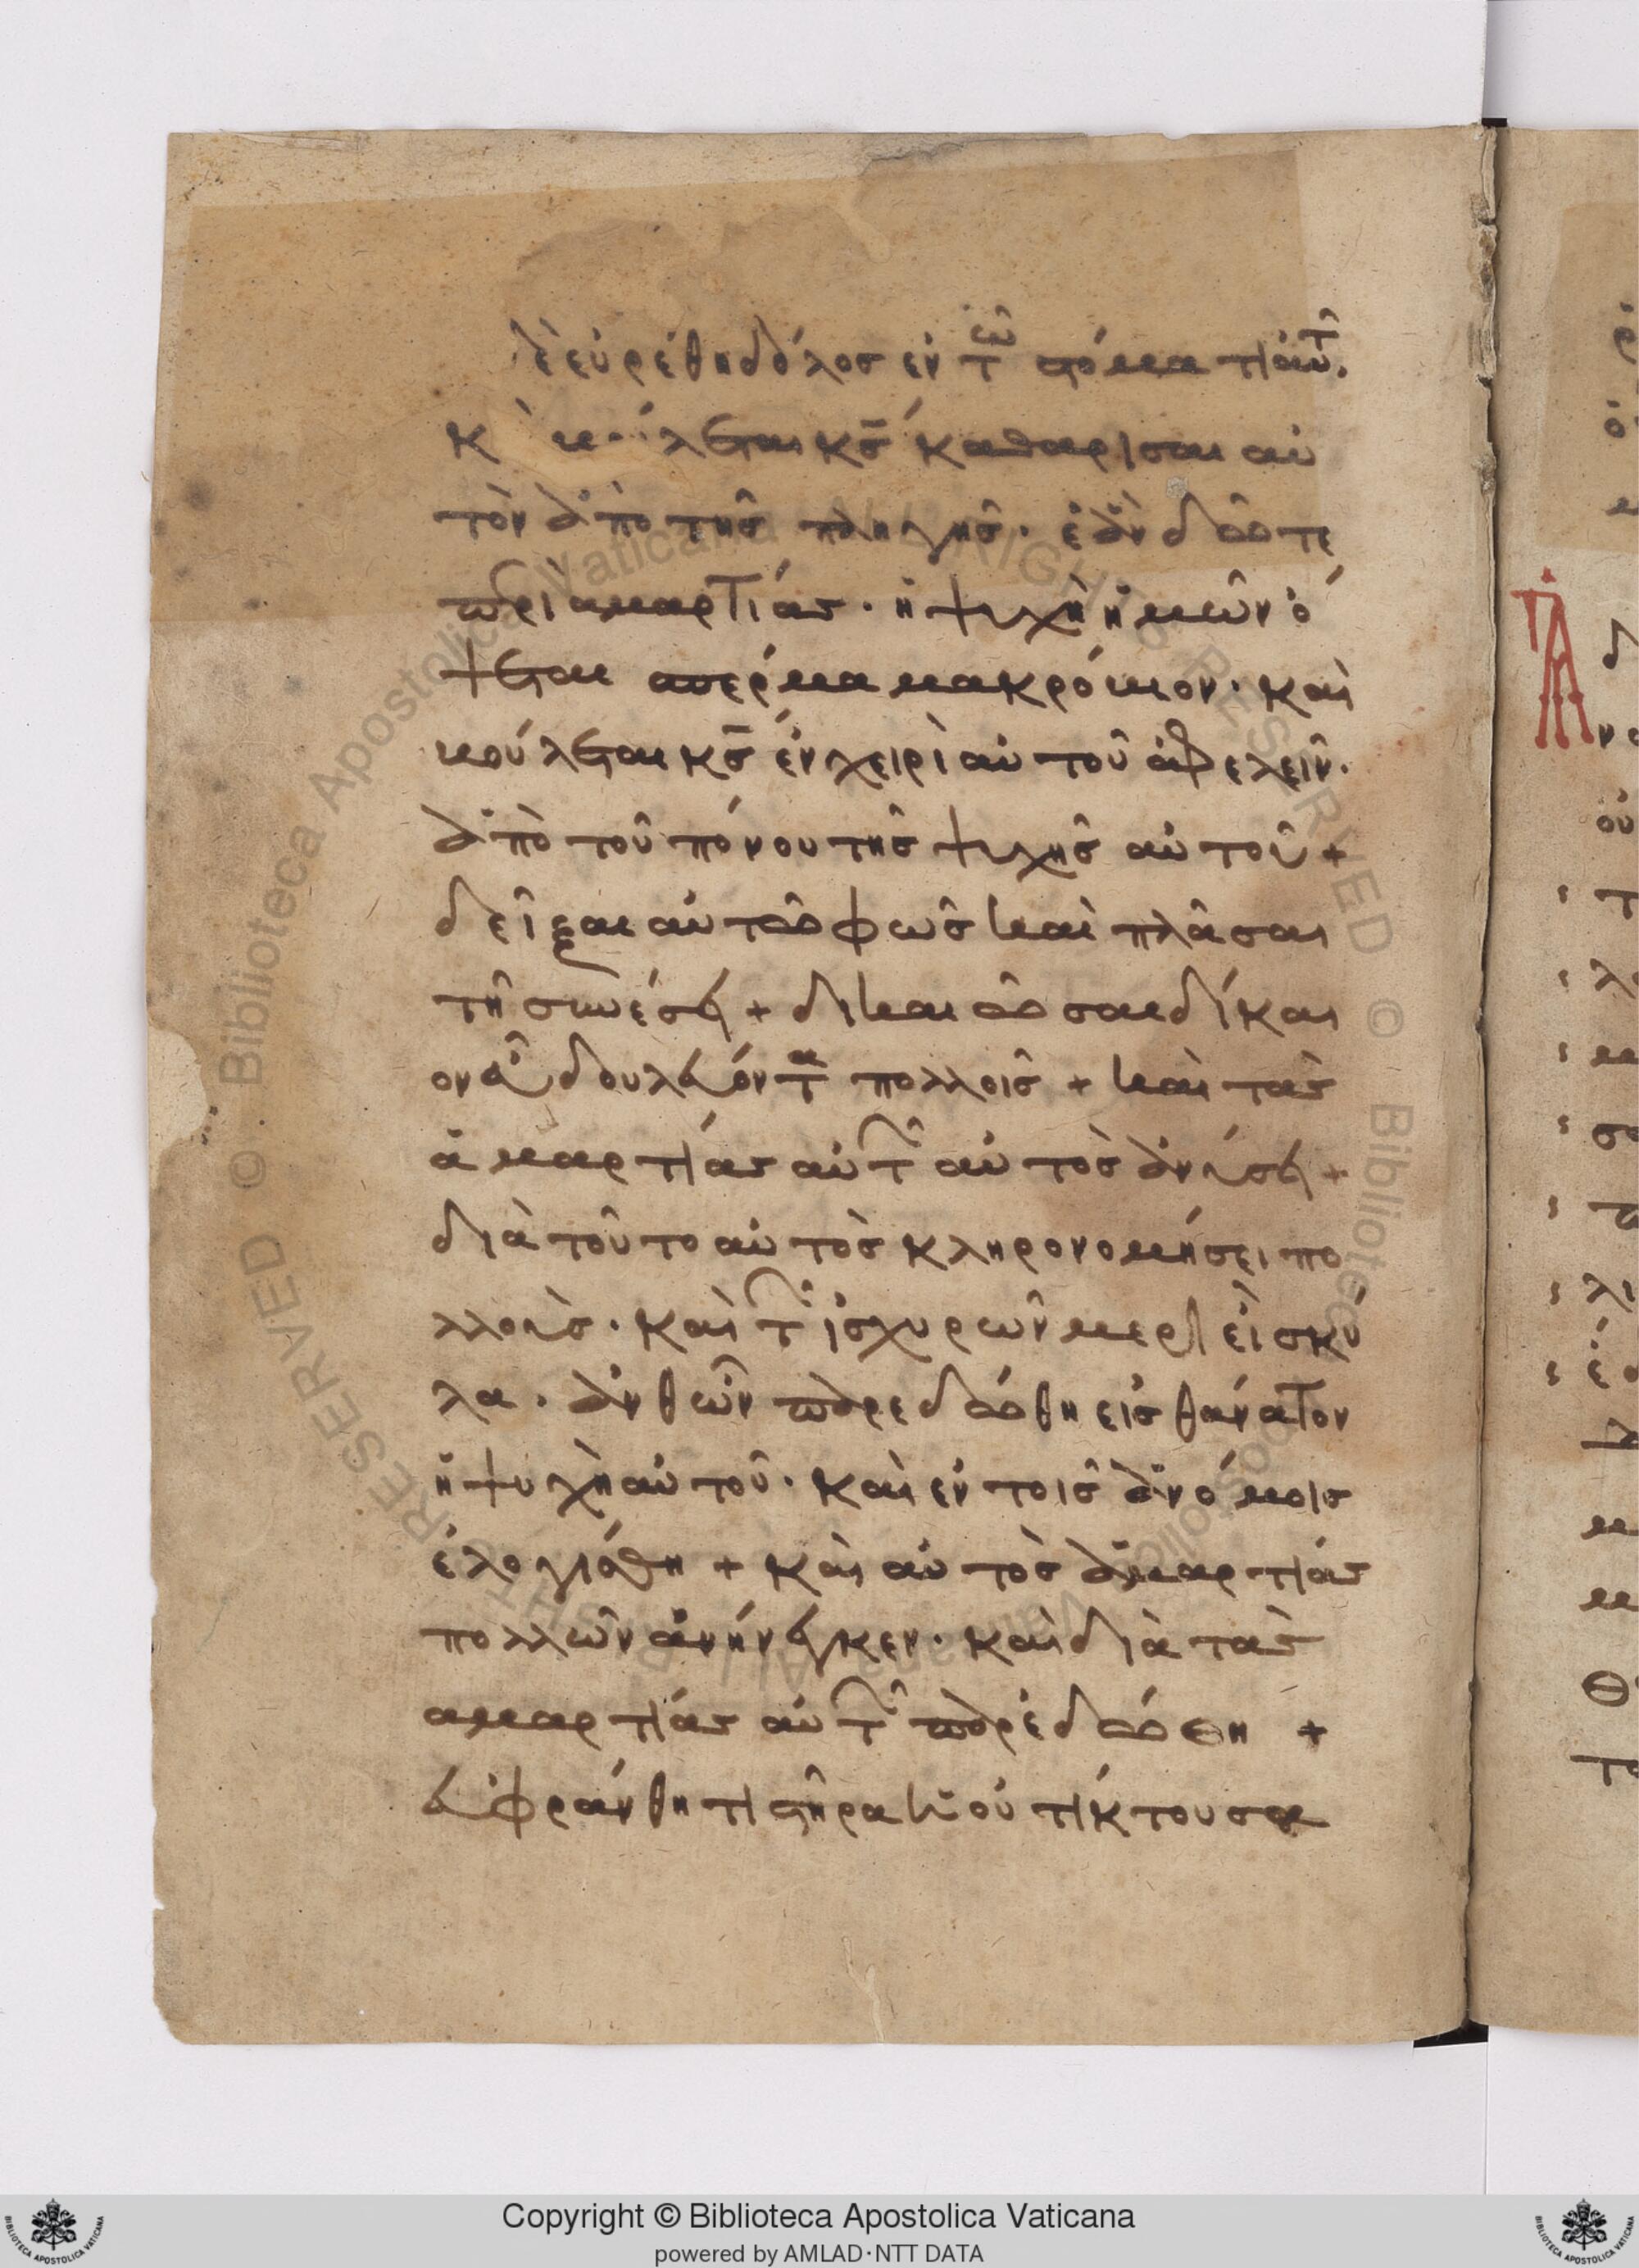 δὲ εὑρέθη δόλος ἐν τῶ στόματι αὐτ.
κ βούλεται κς καθαρίσαι αὐ
τὸν ἀπὸ τῆς πληγῆς. ἐὰν δῶτε
περὶ ἁμαρτίας. ἡ ψυχὴ ἡμῶν ὁ
ψεται σπέρμα μακρόβιον. καὶ
βούλεται κς ἐν χειρὶ αὐτοῦ ἀφελεῖν.
ἀπὸ τοῦ πόνου τῆς ψυχῆς αὐτοῦ +
δεῖξαι αὐτῶ φῶς καὶ πλᾶσαι
τῆ συνέσει + δικαιῶσαι δίκαι
ον εὖ δουλεύοντα πολλοῖς + καὶ τὰς
ἁμαρτίας αὐτῶν αὐτὸς ἀνοίσει +
διὰ τοῦτο αὐτὸς κληρονομήσει πο
λλοὺς. καὶ τῶν ἰσχυρῶν μερεῖ σκῦ
λα. ἀνθ ὧν παρεδώθη εἰς θάνατον
ἡ ψυχὴ αὐτοῦ. καὶ ἐν τοῖς ἀνόμοις
ἐλογίσθη + καὶ αὐτὸς ἁμαρτίας
πολλῶν ἀνήνεγκεν. καὶ διὰ τὰς
αμαρτίας αὐτῶν παρεδώθη +
εὐφράνθητι στῆρα ἡ οὐ τίκτουσα
ALL RIGHTS RESERVED © Biblioteca Apostolica Vaticana
Copyright © Biblioteca Apostolica Vaticana
powered by AMLAD·NTT DATA